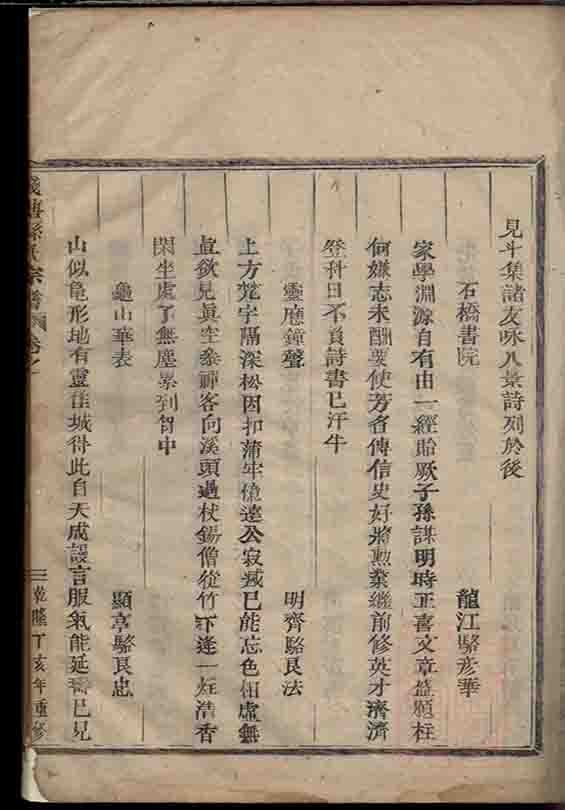 見斗集諸友咏八景詩列於後
石橋書院 龍江駱彥華
家學淵源自有由一經貽厥子孫謀明時正喜文章盛題柱
何嫌志未酬要使芳名傳信史好將勲業繼前修英才濟濟
登科日不負詩書已汗牛
靈應鐘聲 明齊駱良法
上方梵宇隔深松因扣蒲牢憶遠公寂滅已能忘色相虛無
直欲見眞空參禪客向溪頭過杖錫僧從竹下逢一炷清香
閑坐處了無塵累到智中
龜山華表 顯亭駱良忠
山似龜形地有靈佳城得此自天成謾言服氣能延壽已見
孫氏宗譜
乾隆丁亥年重修